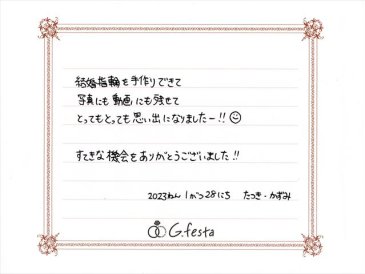 結婚指輪を手作りできて
写真にも動画にも残せて
とってもとっても思い出になりましたー!!
すてきな機会をありがとうございました!!
2023ねん1がつ28にち たつき・かずみ
G.festa